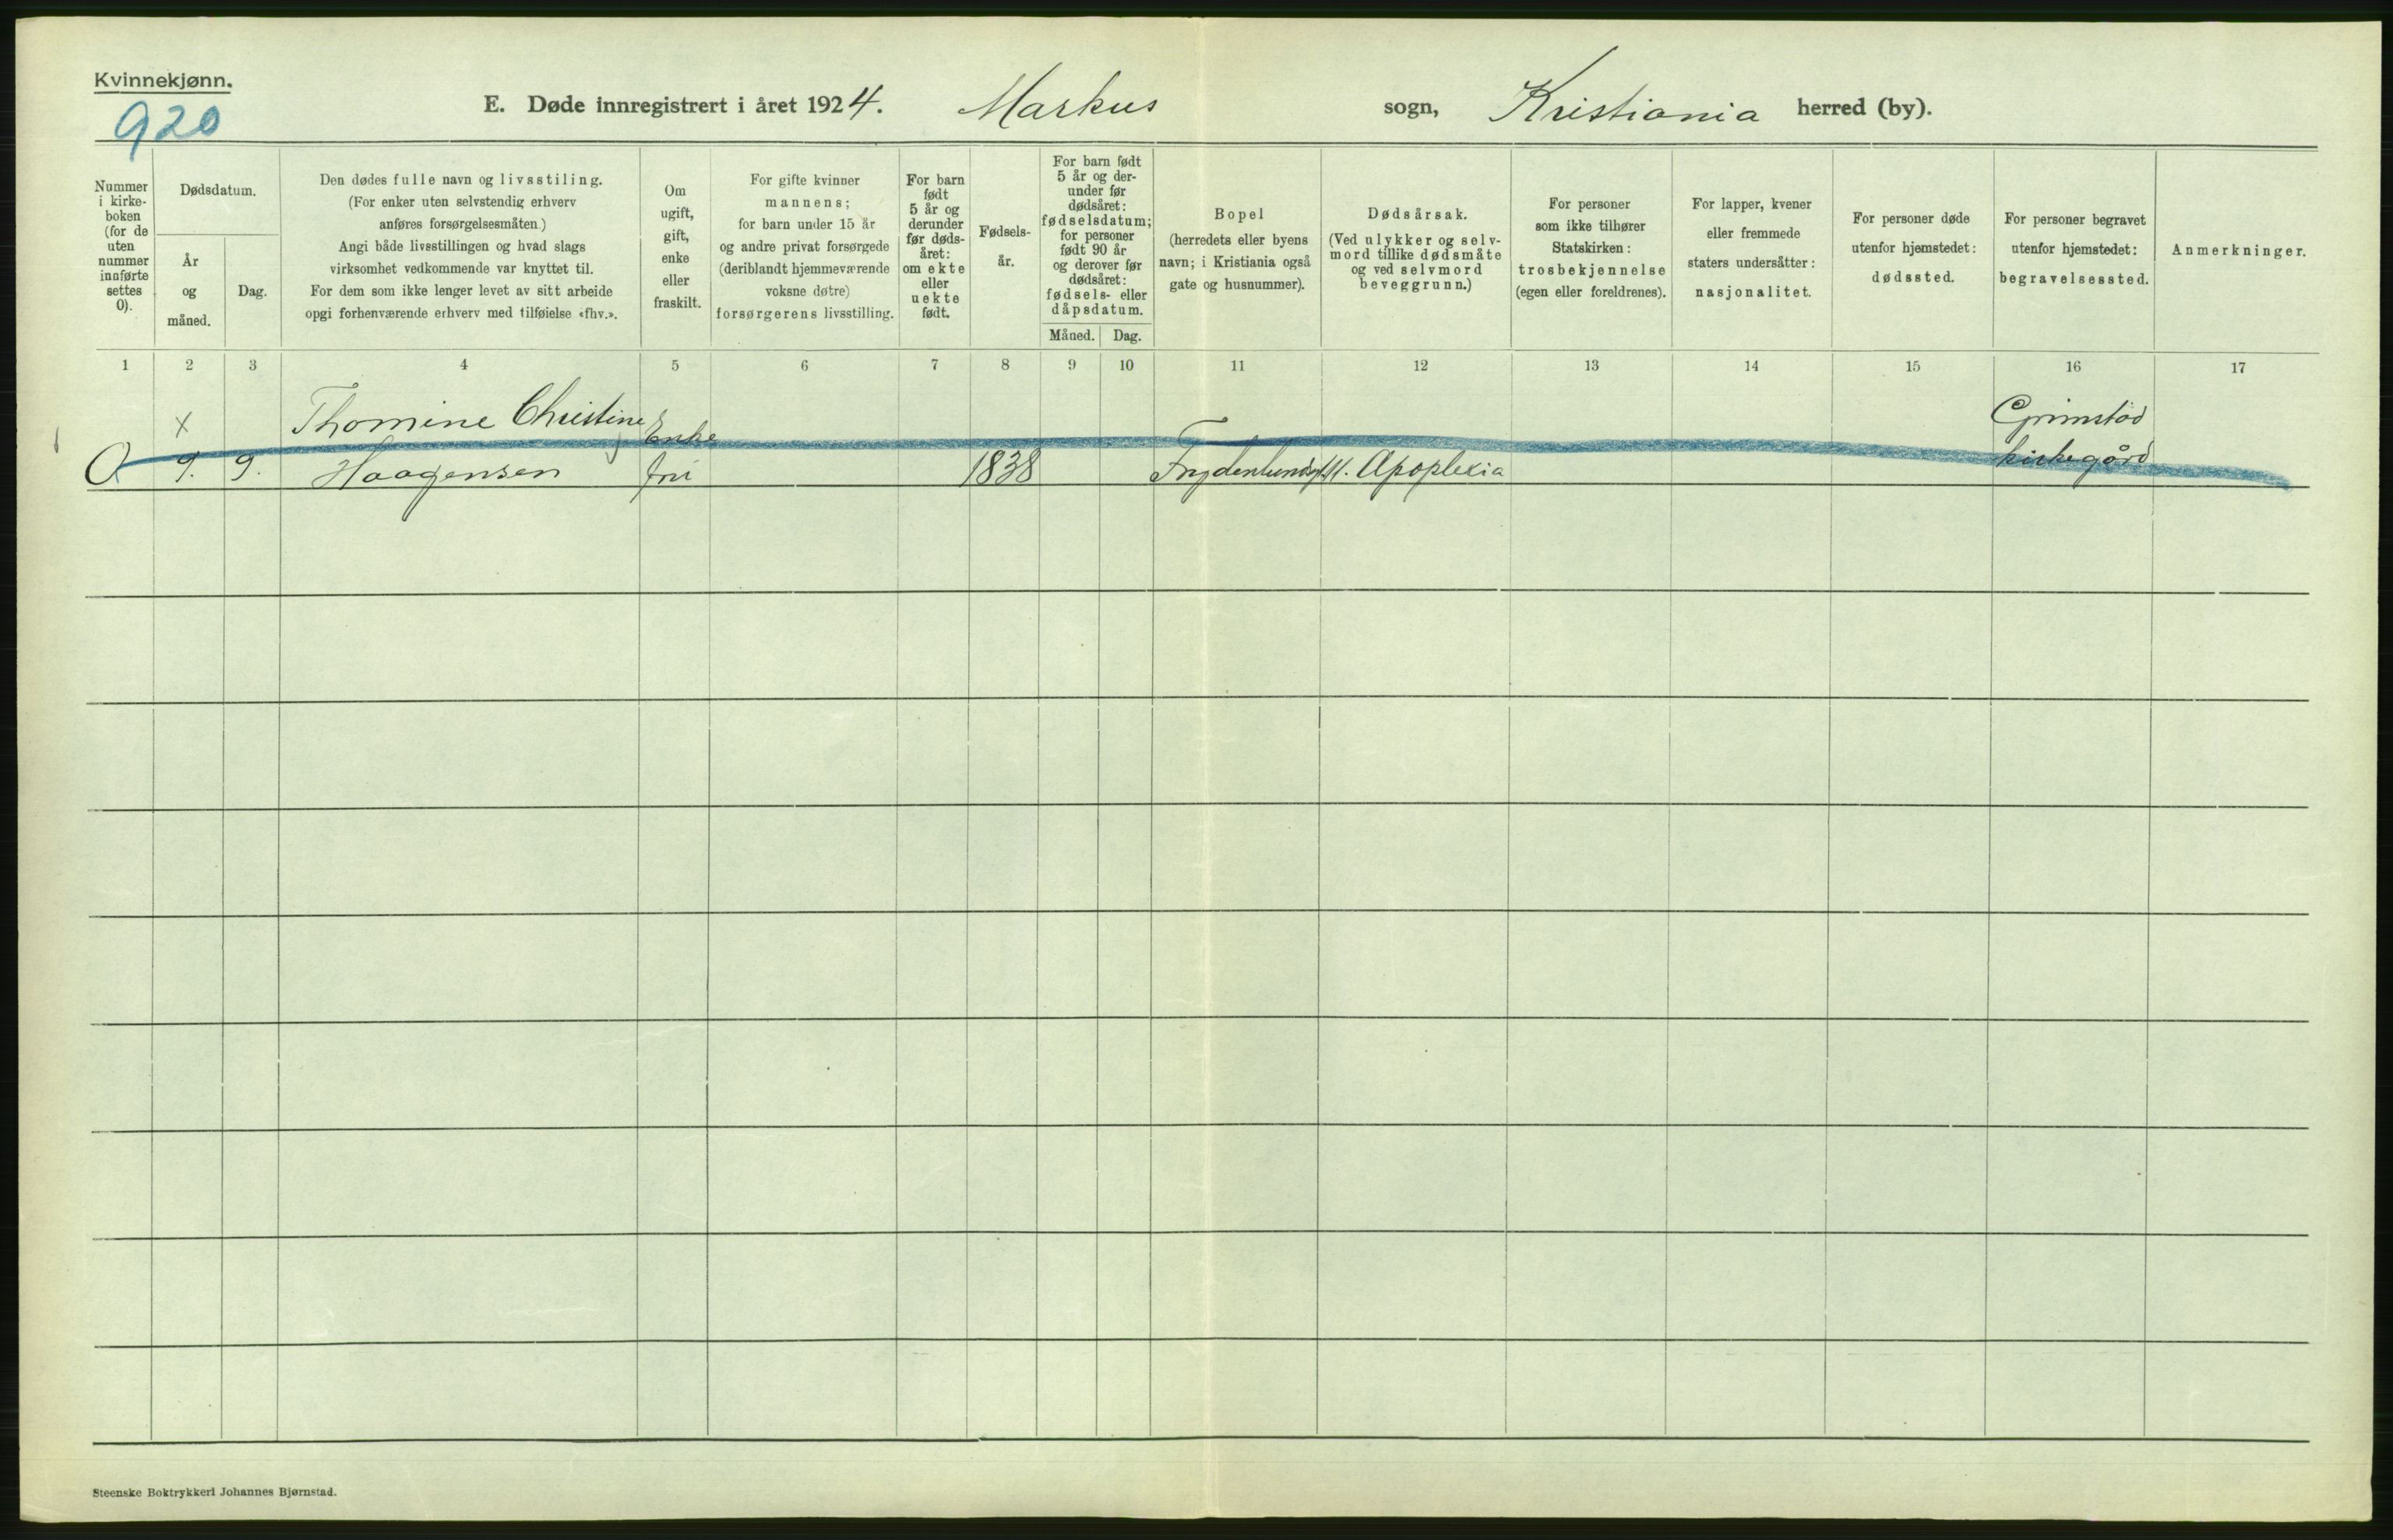 Kvinnekjønn.
920
E. Døde innregistrert i året 1924. Markus sogn, Kristiania herred (by).
Nummer
i kirke-
boken
(for de
uten
nummer
innførte
settes
0).
Dødsdatum.
År
og
måned.
Dag.
Den dødes fulle navn og livsstiling.
(For enker uten selvstendig erhverv
anføres forsørgelsesmåten.)
Angi både livsstillingen og hvad slags
virksomhet vedkommende var knyttet til.
For dem som ikke lenger levet av sitt arbeide
opgi forhenværende erhverv med tilføielse «fhv.».
Om
ugift,
gift,
enke
eller
fraskilt.
For gifte kvinner
mannens;
for barn under 15 år
og andre privat forsørgede
(deriblandt hjemmeværende
voksne døtre)
forsørgerens livsstilling.
For barn
født
5 år og
derunder
før døds-
året:
om ekte
eller
uekte
født.
Fødsels-
år.
For barn født
5 år og der-
under før
dødsåret:
fødselsdatum;
for personer
født 90 år
og derover før
dødsåret:
fødsels- eller
dåpsdatum.
Måned. Dag.
Bopel
(herredets eller byens
navn; i Kristiania også
gate og husnummer).
Dødsårsak.
(Ved ulykker og selv-
mord tillike dødsmåte
og ved selvmord
beveggrunn.)
For personer
som ikke tilhører
Statskirken:
trosbekjennelse
(egen eller foreldrenes).
For lapper, kvener
eller fremmede
staters undersåtter:
nasjonalitet.
For personer døde
utenfor hjemstedet:
dødssted.
For personer begravet
utenfor hjemstedet:
begravelsessted.
Anmerkninger.
1 2 3 4 5 6 7 8 9 10 11 12 13 14 15 16 17
x Thomine Christine Enke Grimstad
0 9. 9. Haagensen fru 1838 Apoplexia kirkegård
Steenske Boktrykkeri Johannes Bjørnstad.